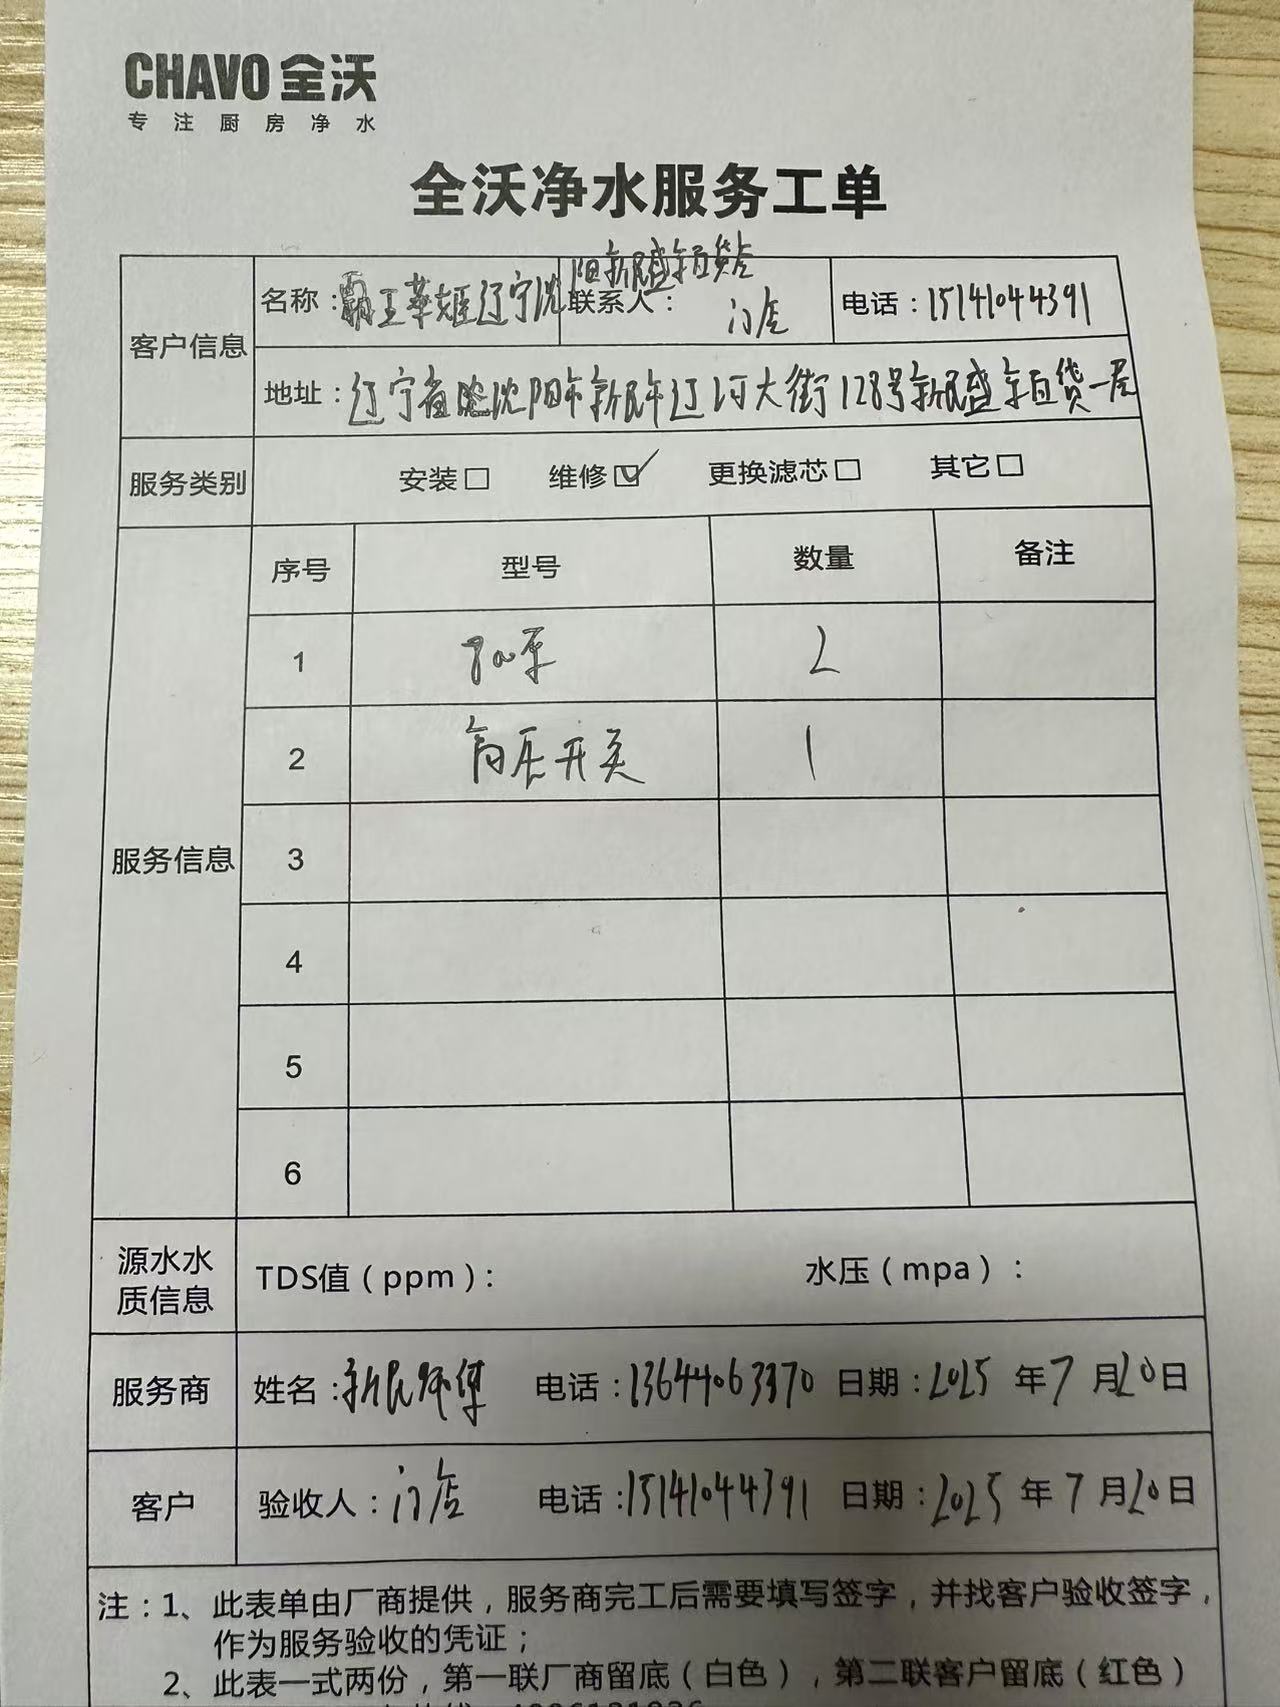 CHAVO 全沃
专注厨房净水
全沃净水服务工单
客户信息
名称：霸王茶姬辽宁沈阳新民盛京百货店
联系人：门店
电话：15141044391
地址：辽宁省沈阳市新民市辽河大街128号新民盛京百货一层
服务类别 安装□ 维修☑ 更换滤芯□ 其它□
服务信息
序号 型号 数量 备注
1 泵 2
2 高压开关 1
3
4
5
6
源水水质信息 TDS值（ppm）： 水压（mpa）：
服务商 姓名：新民师傅 电话：13644063370 日期：2025年7月20日
客户 验收人：门店 电话：15141044391 日期：2025年7月20日
注：1、此表单由厂商提供，服务商完工后需要填写签字，并找客户验收签字，
作为服务验收的凭证；
2、此表一式两份，第一联厂商留底（白色），第二联客户留底（红色）